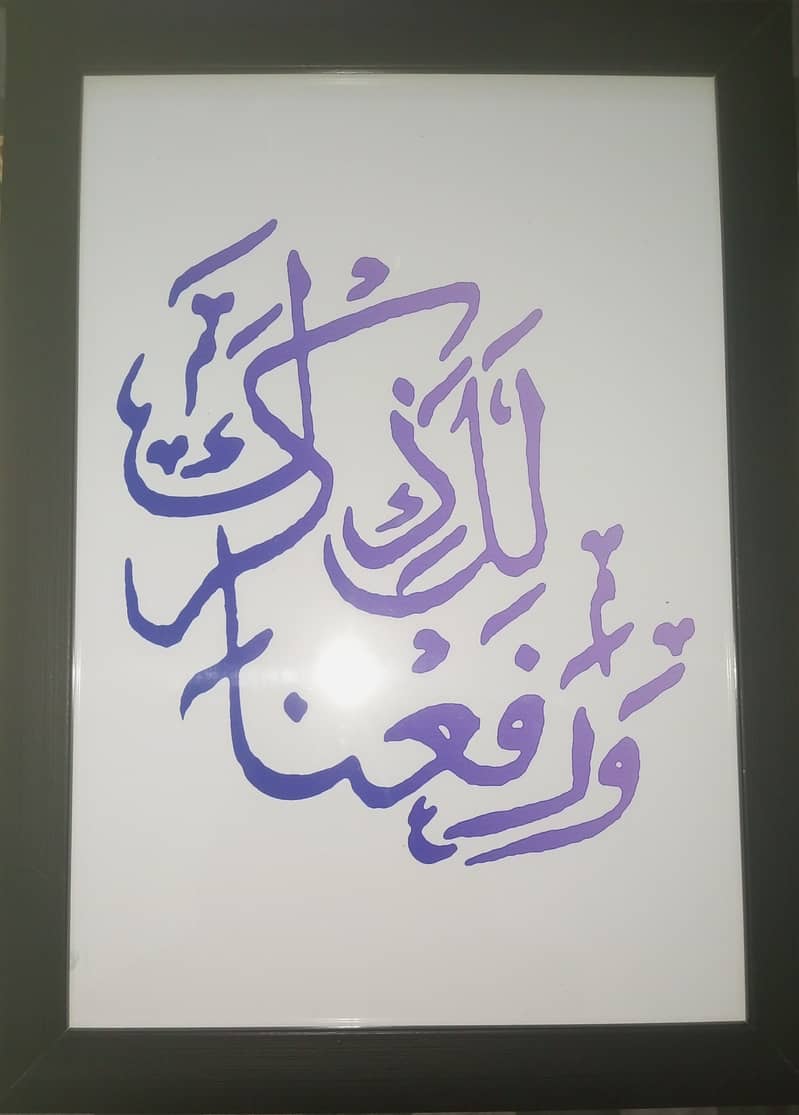 وَرَفَعْنَا
لَكَ ذِكْرَكَ